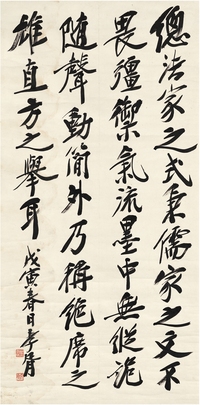 總法家之式秉儒家之文不
畏彊禦氣流墨中無縱詭
隨聲動簡外乃稱絶席之
雄直方之舉耳
戊寅春日孝胥